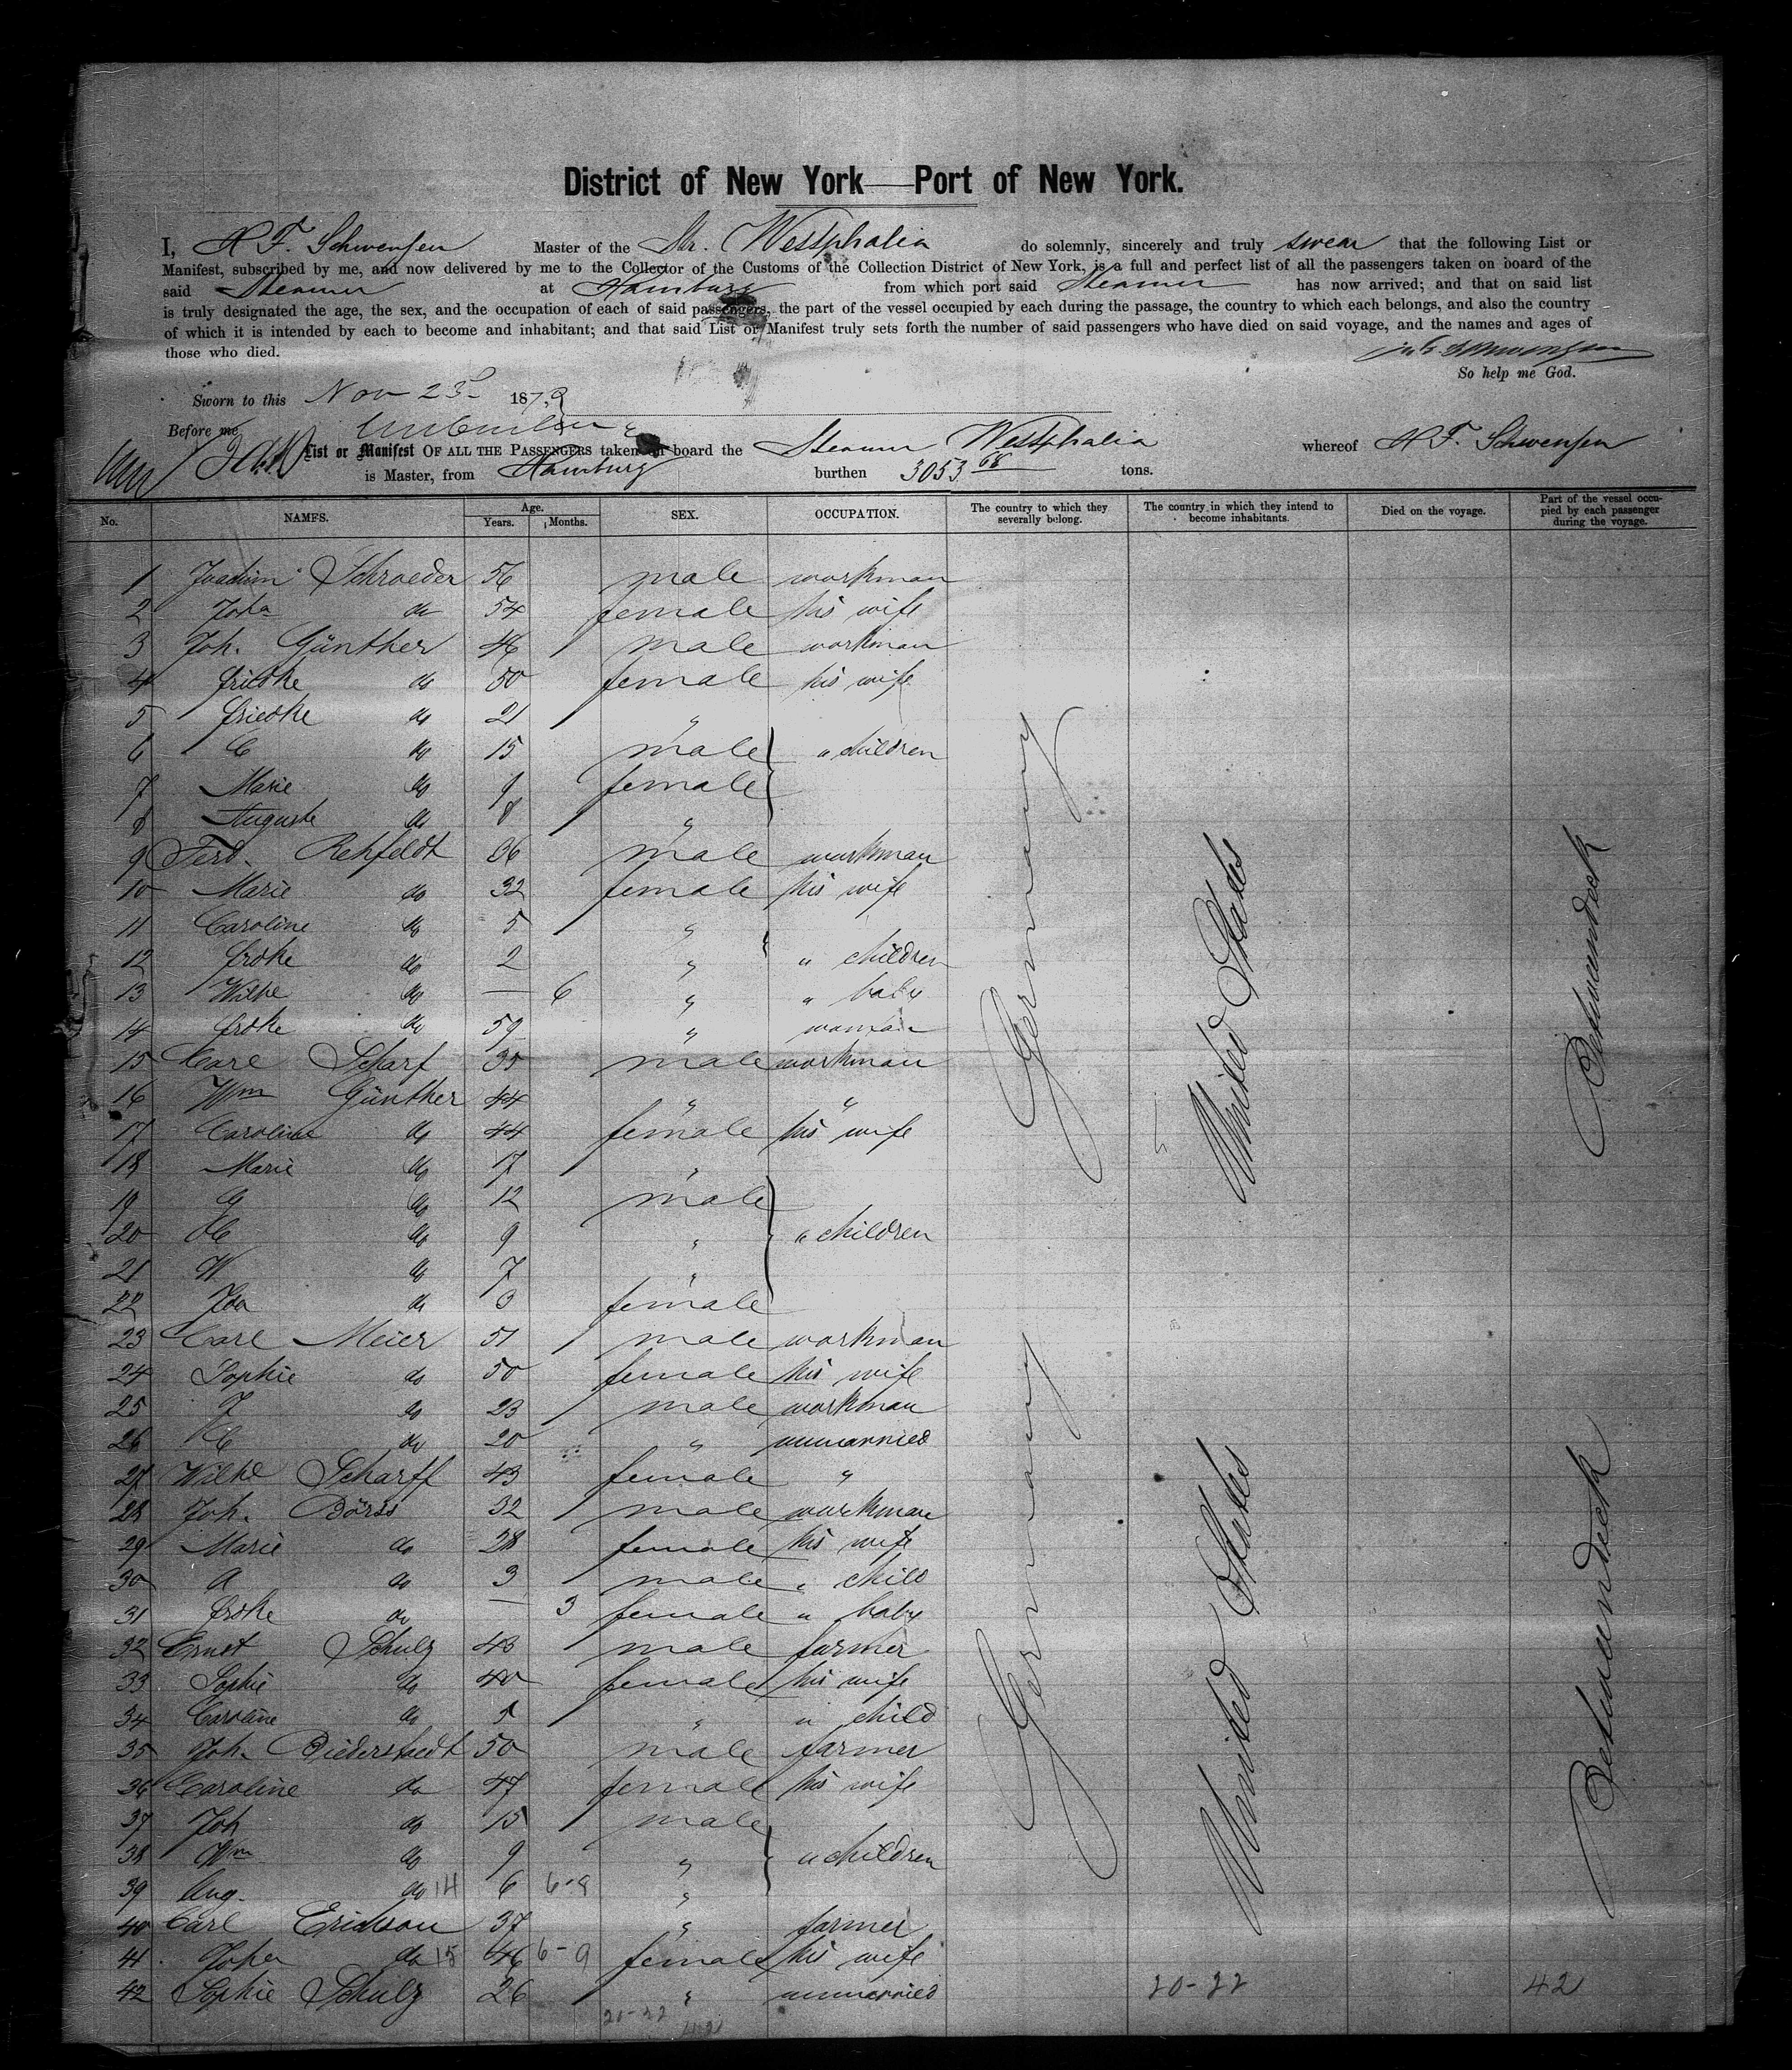 District of New York—Port of New York.
I, H F. Schwensen Master of the Str. Westphalia do solemnly, sincerely and truly swear that the following List or
Manifest, subscribed by me, and now delivered by me to the Collector of the Customs of the Collection District of New York, is a full and perfect list of all the passengers taken on board of the
said Steamer at Hamburg from which port said Steamer has now arrived; and that on said list
is truly designated the age, the sex, and the occupation of each of said passengers, the part of the vessel occupied by each during the passage, the country to which each belongs, and also the country
of which it is intended by each to become and inhabitant; and that said List or Manifest truly sets forth the number of said passengers who have died on said voyage, and the names and ages of
those who died.
So help me God.
Sworn to this Nov 23 187
Before me
List or Manifest OF ALL THE PASSENGERS taken on board the Steamer Westphalia whereof H F. Schwensen
is Master, from Hamburg burthen 3053 68 tons.
No. NAMES. Age. Years. Months. SEX. OCCUPATION. The country to which they severally belong. The country in which they intend to become inhabitants. Died on the voyage. Part of the vessel occupied by each passenger during the voyage.
1 Joachim Schroeder 56 male workman
2 Joha do 54 female his wife
3 Joh. Günther 46 male workman
4 friedke do 50 female his wife
5 friedke do 21 "
6 C do 15 male " children
7 Marie do 9 female
8 Auguste do 8 "
9 Ferd. Rehfeldt 36 male workman
10 Marie do 32 female his wife
11 Caroline do 5 "
12 frdke do 2 " " children
13 Wilhe do — 6 " " baby
14 frdke do 59 " woman
15 Carl Scharf 35 male workman
16 Wm Günther 44 " "
17 Caroline do 44 female his wife
18 Marie do 17 "
19 G do 12 male
20 C do 9 " " children
21 W do 7 "
22 Ida do 3 female
23 Carl Meier 51 male workman
24 Sophie do 50 female his wife
25 J do 23 male workman
26 C do 20 " unmarried
27 Wilhe Scharff 43 female "
28 Joh. Börss 32 male workman
29 Marie do 28 female his wife
30 A do 3 male " child
31 frdke do — 3 female " baby
32 Ernst Schulz 43 male farmer
33 Sophie do 40 female his wife
34 Caroline do 5 " " child
35 Joh. Biederstaedt 50 male farmer
36 Caroline do 47 female his wife
37 Joh do 15 male
38 Wm do 9 " " children
39 Aug. do 14 6 6-8 "
40 Carl Erickson 37 " farmer
41 Joha do 15 46 6-9 female his wife
42 Sophie Schulz 26 " unmarried
Germany
United States
Betweendeck
Germany
United States
Betweendeck
20-22
42
20-22